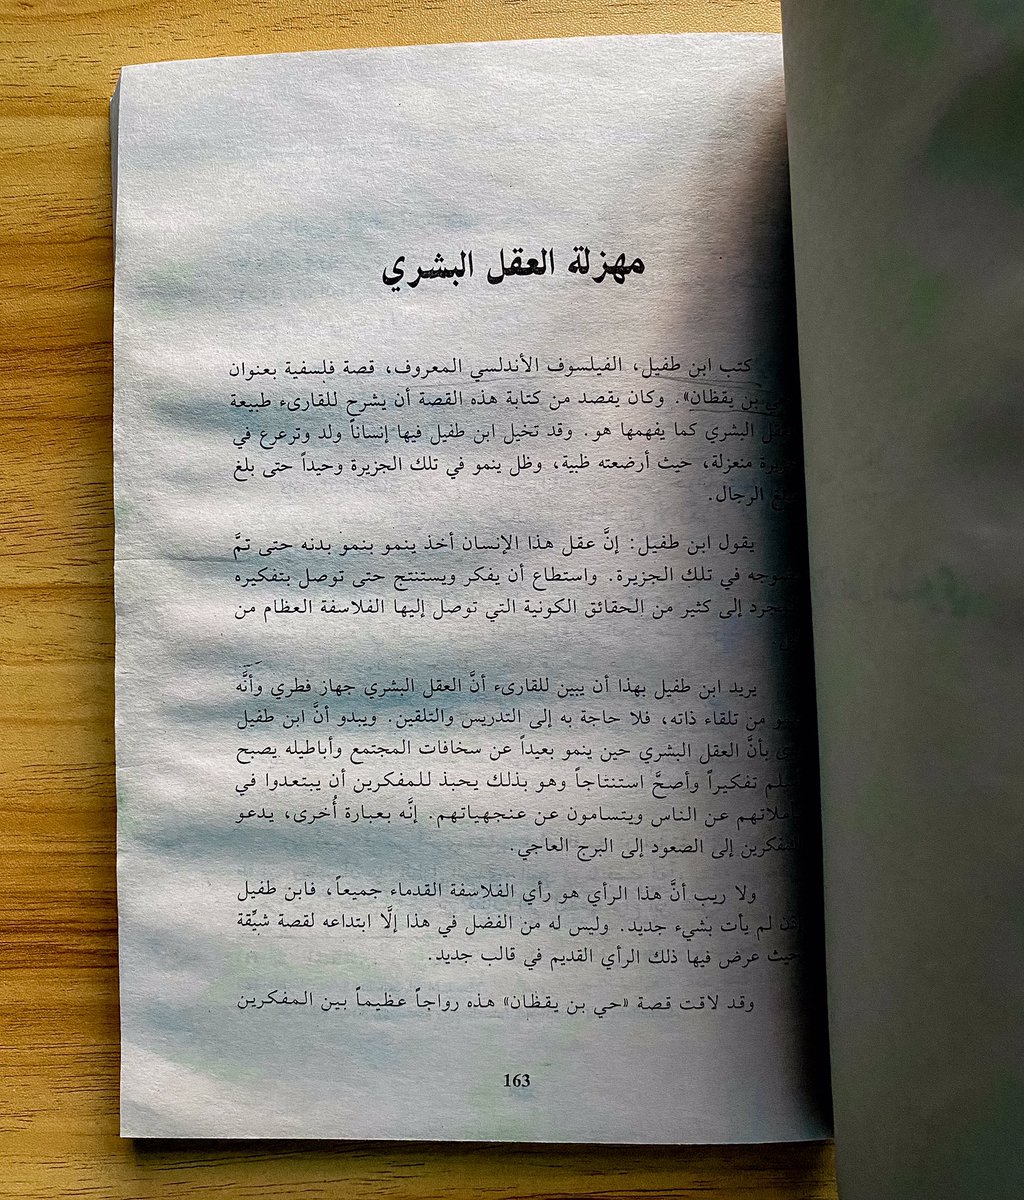 مهزلة العقل البشري
كتب ابن طفيل، الفيلسوف الأندلسي المعروف، قصة فلسفية بعنوان
بن يقظان». وكان يقصد من كتابة هذه القصة أن يشرح للقارىء طبيعة
البشري كما يفهمها هو. وقد تخيل ابن طفيل فيها إنساناً ولد وترعرع في
منعزلة، حيث أرضعته ظبية، وظل ينمو في تلك الجزيرة وحيداً حتى بلغ
الرجال.
يقول ابن طفيل: إنَّ عقل هذا الإنسان أخذ ينمو بنمو بدنه حتى تمَّ
في تلك الجزيرة. واستطاع أن يفكر ويستنتج حتى توصل بتفكيره
إلى كثير من الحقائق الكونية التي توصل إليها الفلاسفة العظام من
يريد ابن طفيل بهذا أن يبين للقارىء أنَّ العقل البشري جهاز فطري وأنَّه
من تلقاء ذاته، فلا حاجة به إلى التدريس والتلقين. ويبدو أنَّ ابن طفيل
بأنَّ العقل البشري حين ينمو بعيداً عن سخافات المجتمع وأباطيله يصبح
تفكيراً وأصحَّ استنتاجاً وهو بذلك يحبذ للمفكرين أن يبتعدوا في
عن الناس ويتسامون عن عنجهياتهم. إنَّه بعبارة أُخرى، يدعو
المفكرين إلى الصعود إلى البرج العاجي.
ولا ريب أنَّ هذا الرأي هو رأي الفلاسفة القدماء جميعاً، فابن طفيل
لم يأت بشيء جديد. وليس له من الفضل في هذا إلَّا ابتداعه لقصة شيِّقة
حيث عرض فيها ذلك الرأي القديم في قالب جديد.
وقد لاقت قصة «حي بن يقظان» هذه رواجاً عظيماً بين المفكرين
163